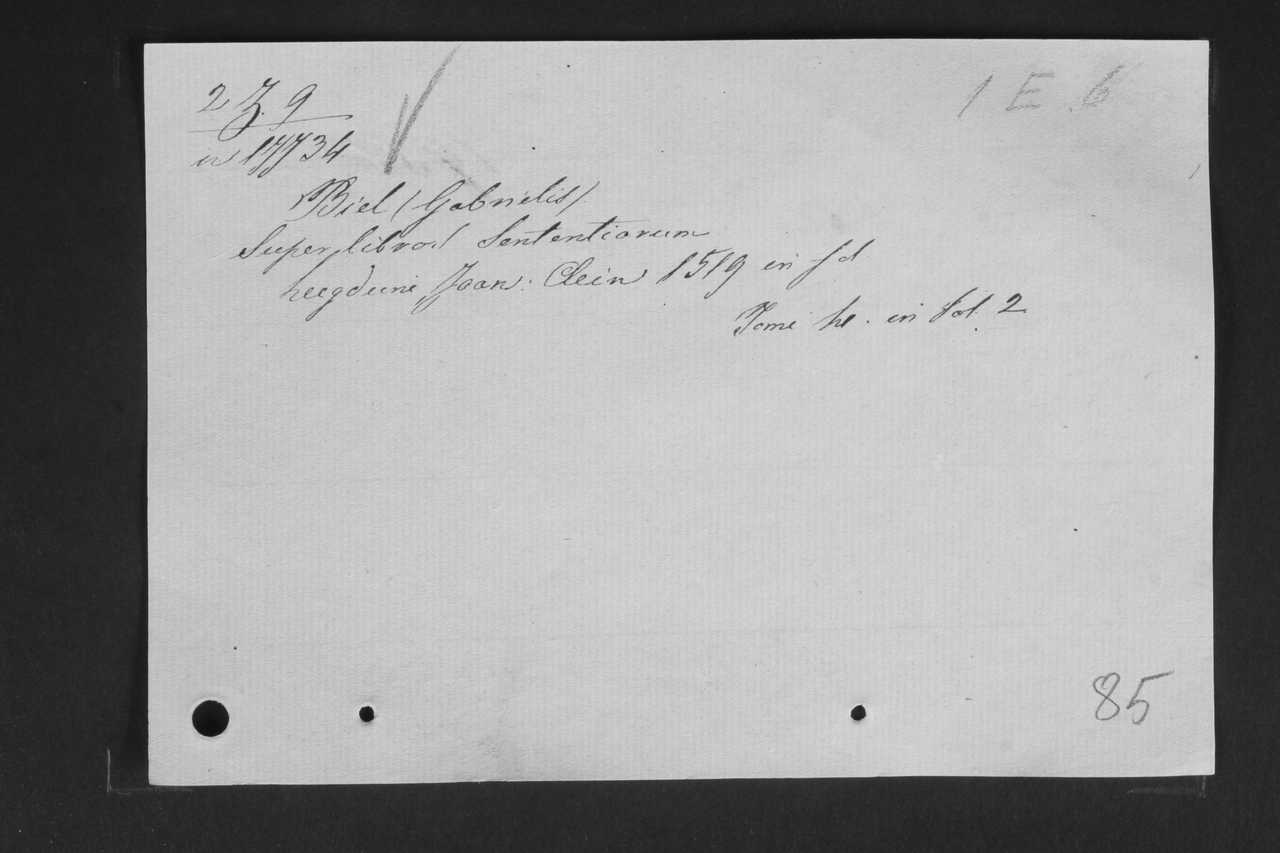 2 Z. 9
1 E 6
n 17734
Biel (Gabrielis)
Super libros Sententiarum
Lugduni Joan: Clein 1519 in fol
Tomi in vol. 2
85